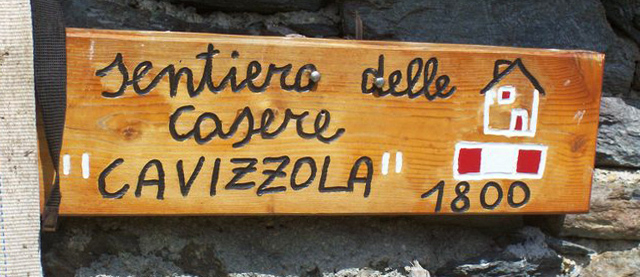 sentiero delle
casere
"CAVIZZOLA"
1800